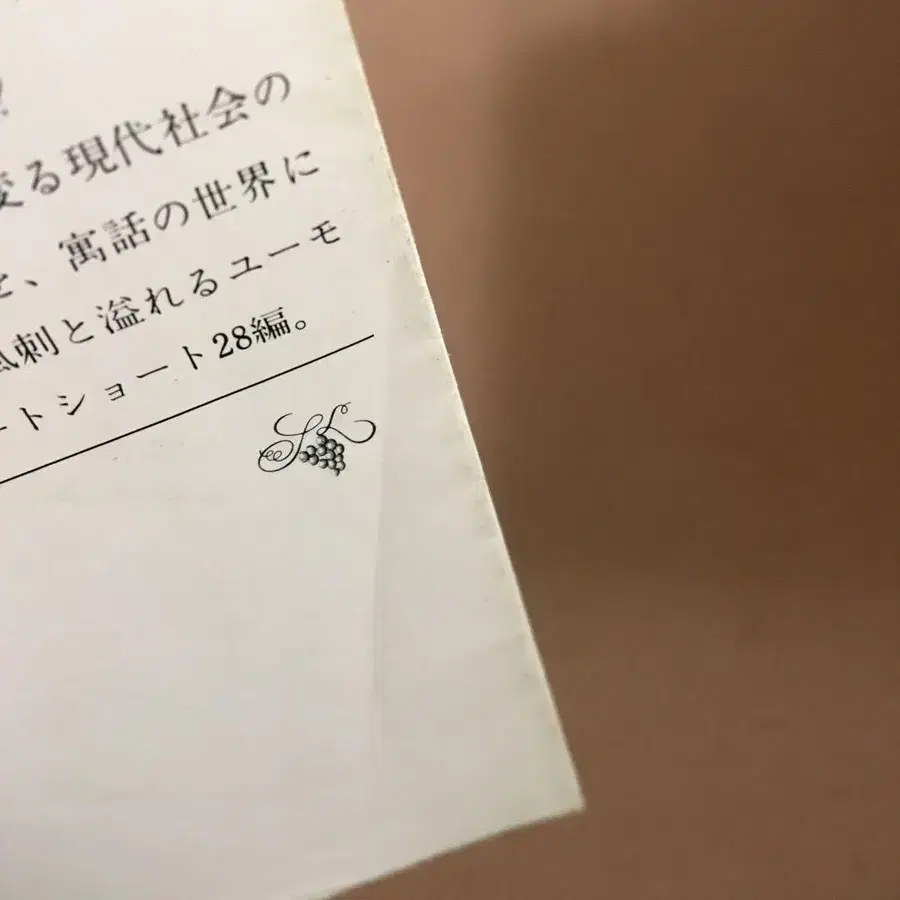 ?
変る現代社会の
を、寓話の世界に
風刺と溢れるユーモ
ートショート28編。
SL